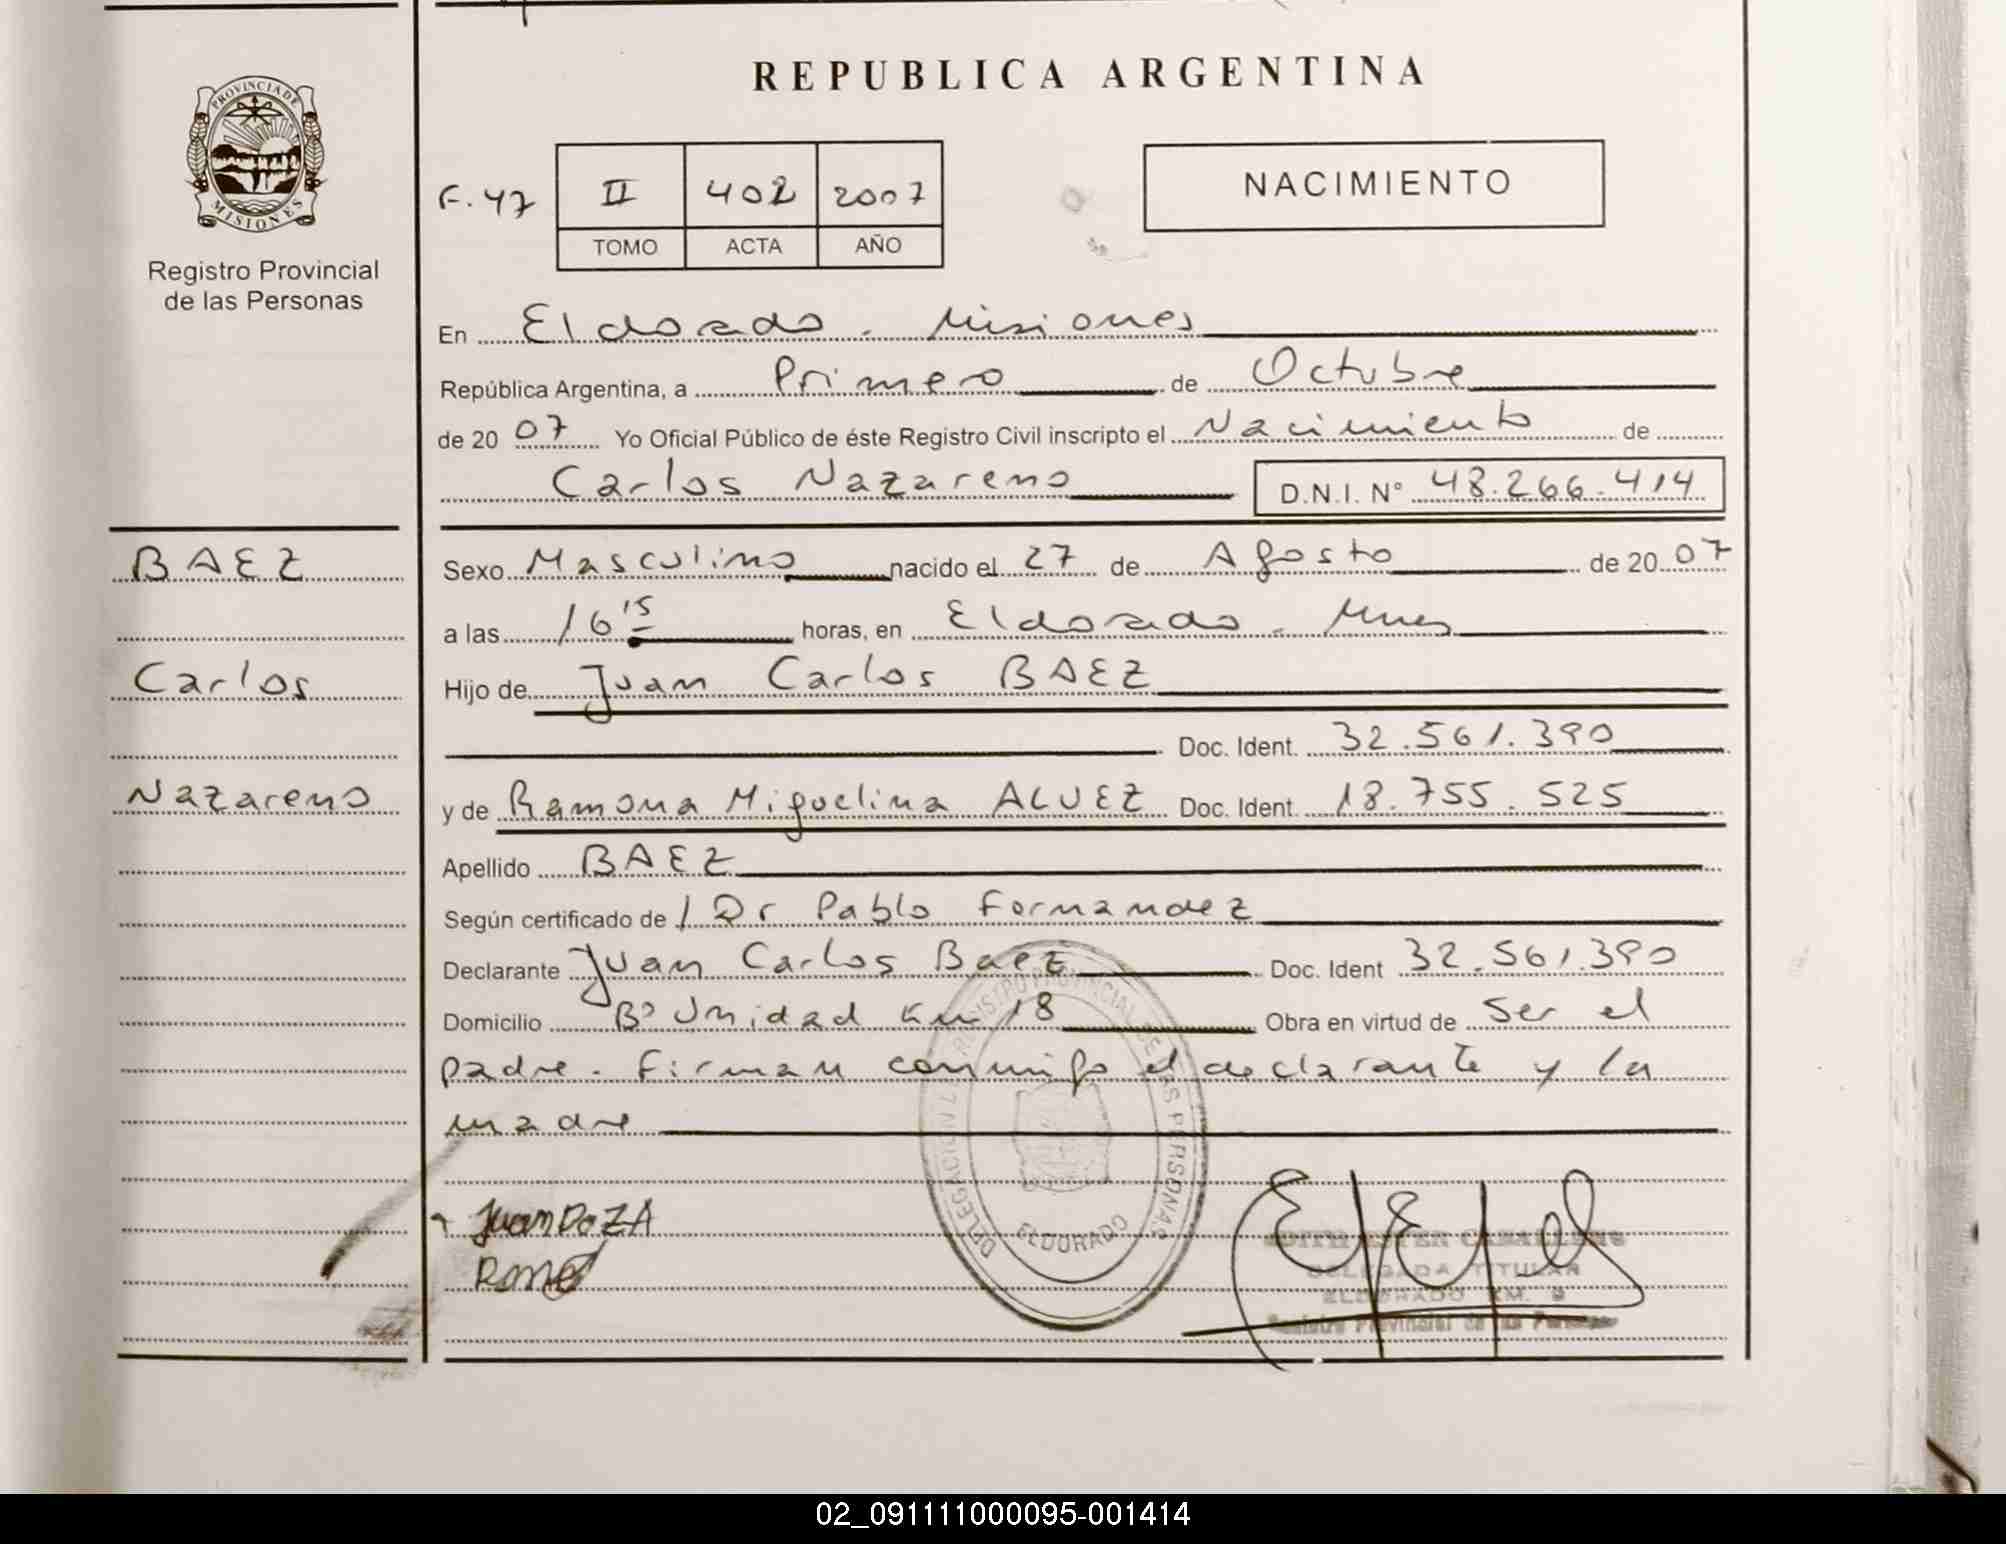 PROVINCIA DE
MISIONES
Registro Provincial
de las Personas
REPUBLICA ARGENTINA
F. 47 II 402 2007
TOMO ACTA AÑO
NACIMIENTO
En Eldorado - Misiones
República Argentina, a Primero de Octubre
de 20 07 Yo Oficial Público de éste Registro Civil inscripto el Nacimiento de
Carlos Nazareno D.N.I. N° 48.266.414
BAEZ
Sexo Masculino nacido el 27 de Agosto de 20 07
a las 16 15 horas, en Eldorado - Mnes
Carlos
Hijo de Juan Carlos BAEZ
Doc. Ident. 32.561.390
Nazareno
y de Ramona Miguelina ALVEZ Doc. Ident. 18.755.525
Apellido BAEZ
Según certificado de / Dr Pablo Fernandez
Declarante Juan Carlos Baez Doc. Ident 32.561.390
Domicilio B° Unidad Km 18 Obra en virtud de ser el
padre. Firman conmigo el declarante y la
madre
DELEGACION REGISTRO PROVINCIAL DE LAS PERSONAS
ELDORADO
Juan
DELEGADA TITULAR
ELDORADO KM. 9
Registro Provincial de las Personas
02_091111000095-001414